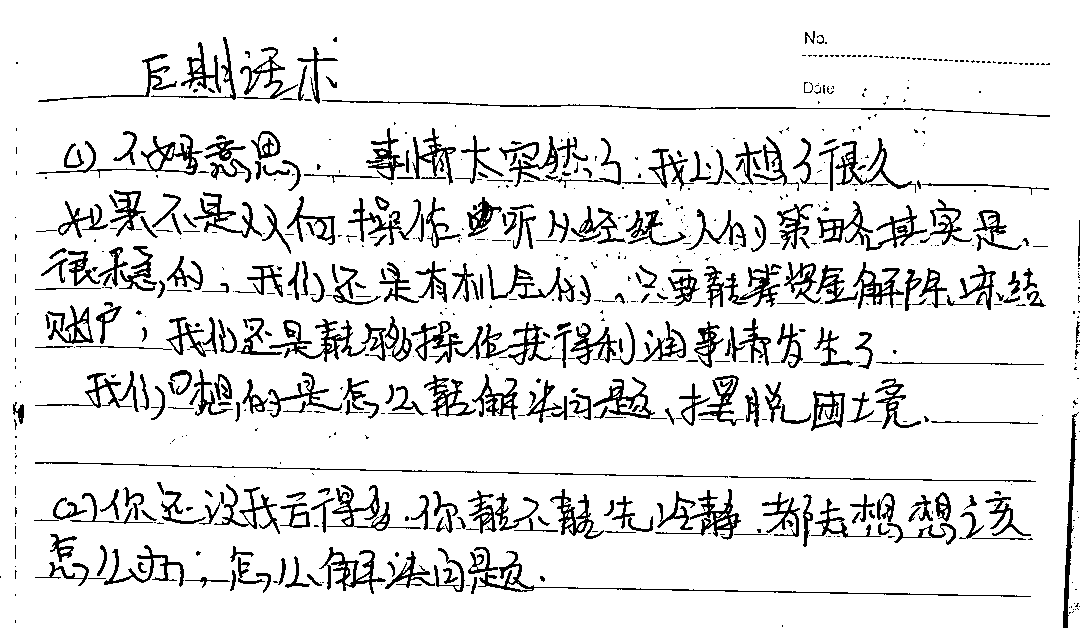 No.
Date
后期话术
(1) 不好意思, 事情太突然了.我以想了很久,
如果不是双向操作 听从经纪人的策略其实是
很稳的,我们还是有机会的、只要能筹资金解除冻结
账户;我们还是能够操作获得利润事情发生了.
我们想的是怎么能解决问题、摆脱困境、
(2)你还没我亏得多.你能不能先冷静.都去想想该
怎么办;怎么解决问题.